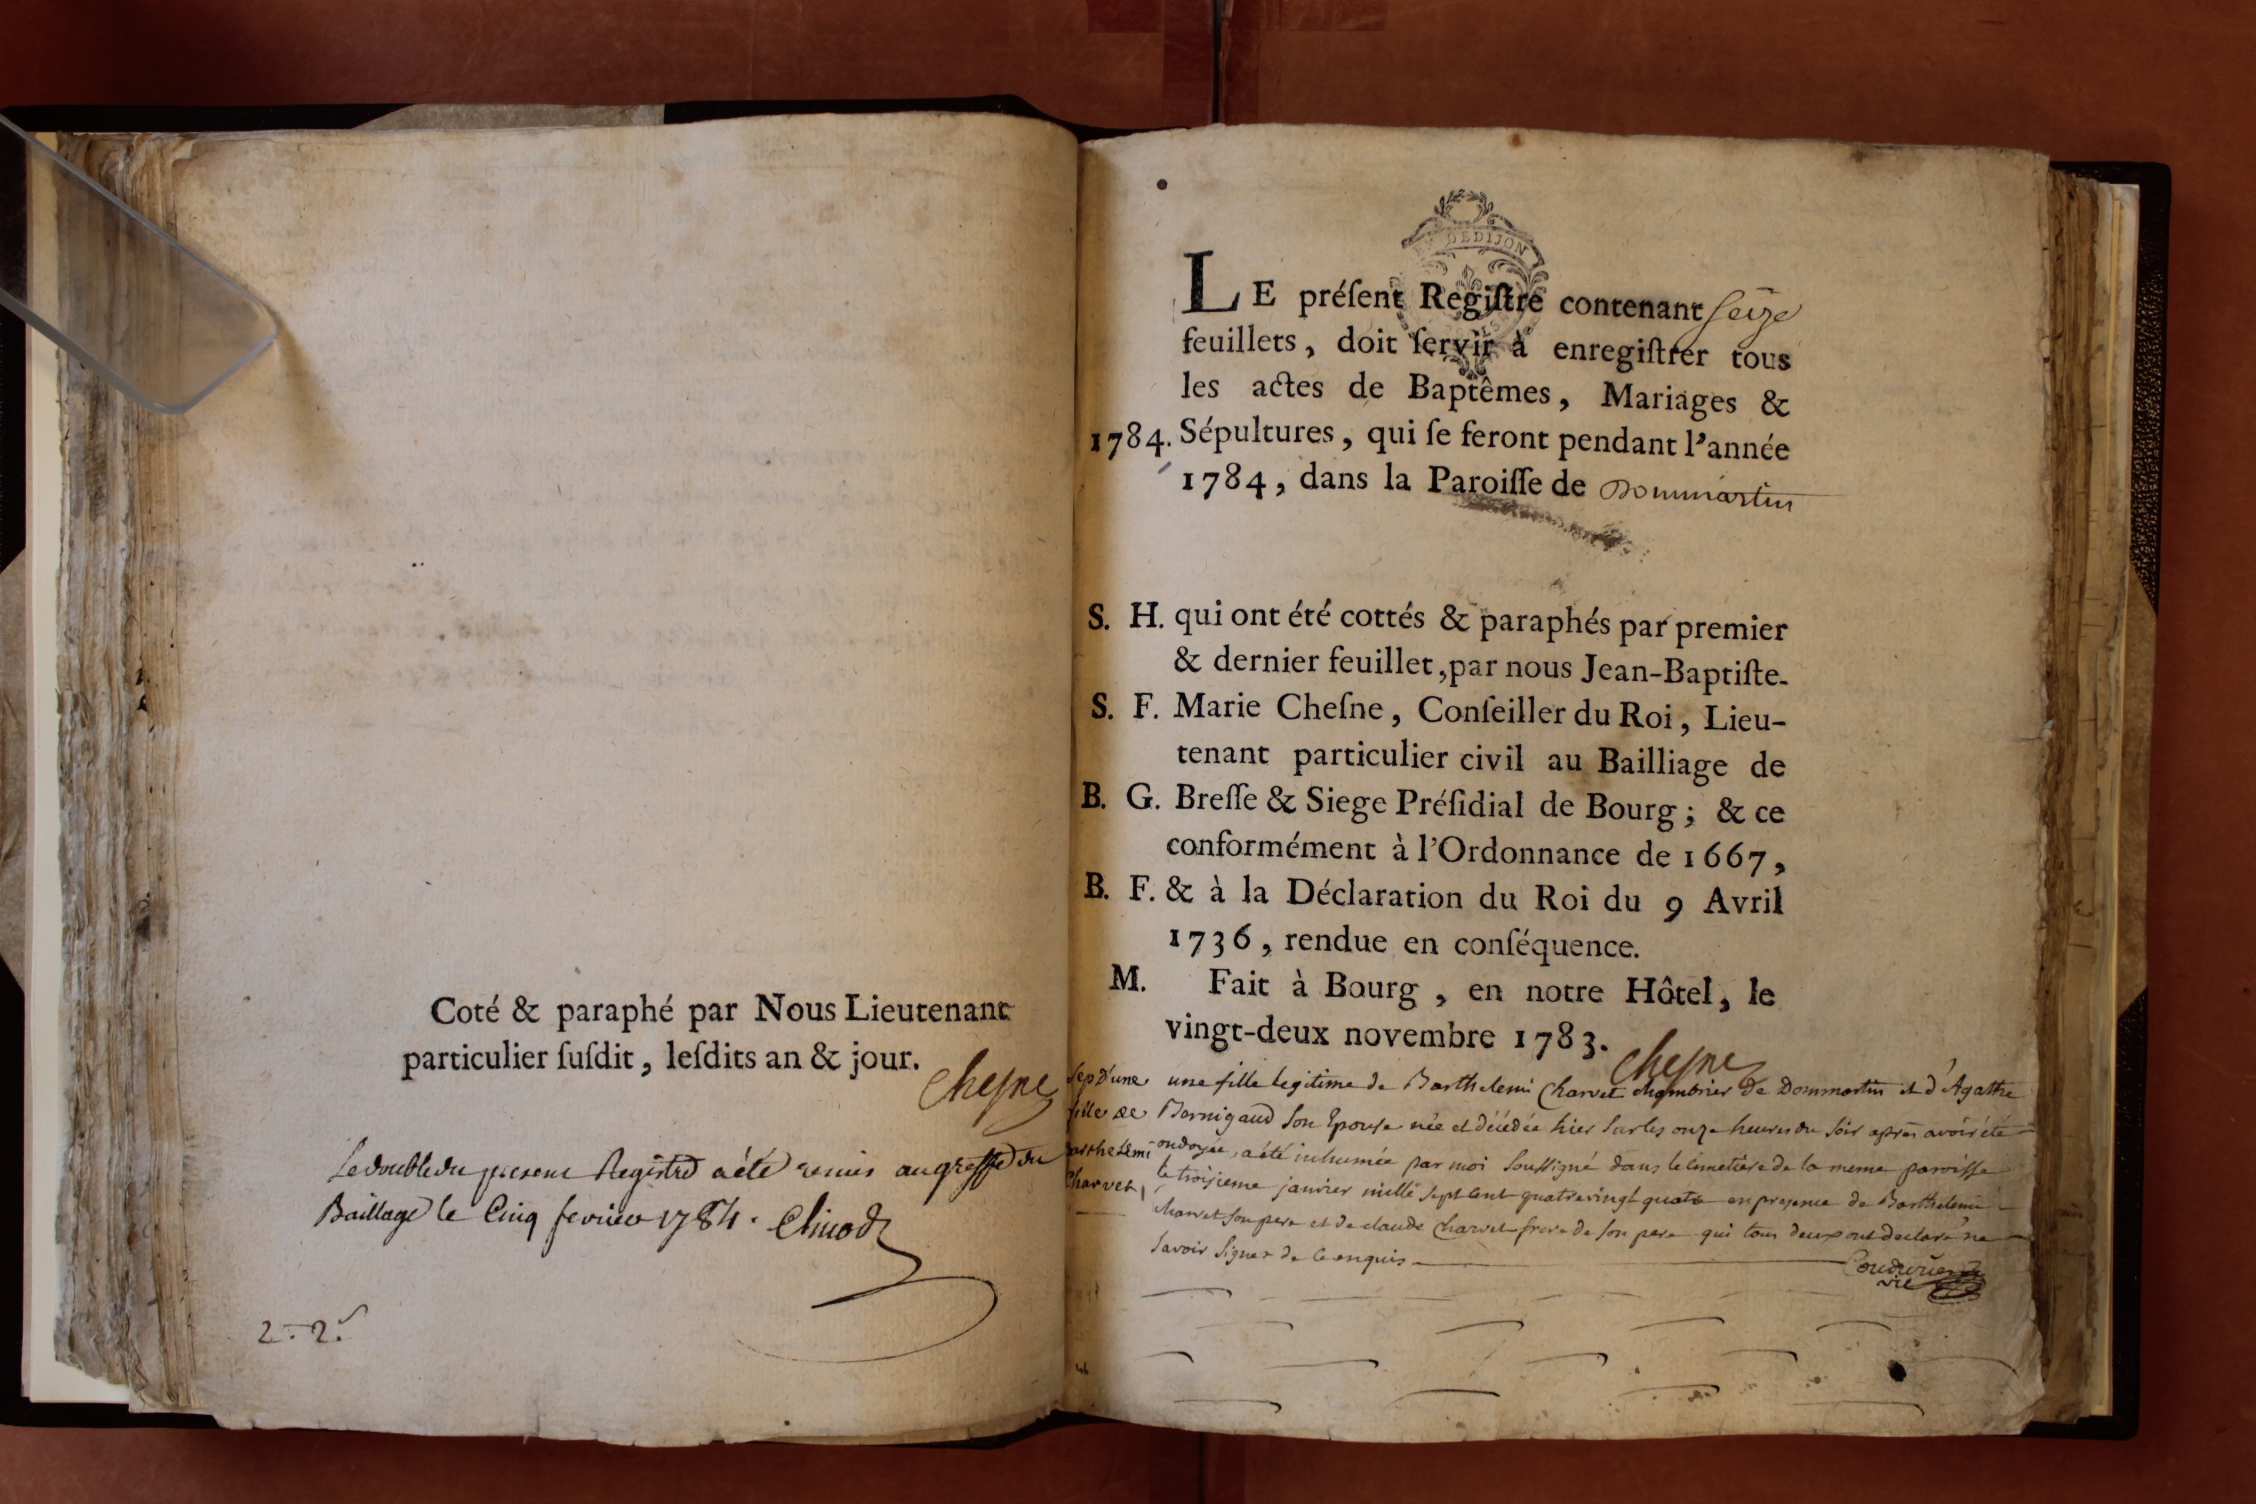 Coté & paraphé par Nous Lieutenant
particulier ſuſdit, leſdits an & jour.
Cheſne
Le double du present Registre a été remis au greffe du
Baillage le Cinq fevrier 1784.
2. 2.
DEDIJON
LE préſent Regiſtre contenant ſeize
feuillets, doit ſervir à enregiſtrer tous
les actes de Baptêmes, Mariages &
1784. Sépultures, qui ſe feront pendant l'année
1784, dans la Paroiſſe de Dommartin
S. H. qui ont été cottés & paraphés par premier
& dernier feuillet, par nous Jean-Baptiſte-
S. F. Marie Cheſne, Conſeiller du Roi, Lieu-
tenant particulier civil au Bailliage de
B. G. Breſſe & Siege Préſidial de Bourg; & ce
conformément à l'Ordonnance de 1667,
B. F. & à la Déclaration du Roi du 9 Avril
1736, rendue en conſéquence.
M. Fait à Bourg, en notre Hôtel, le
vingt-deux novembre 1783.
Cheſne
Sep D'une
fille de
Barthelemi
Charvet,
une fille legitime de Barthelemi Charvet de Dommartin et d'Agathe
Bernigaud son Epouse née et décédée hier sur les onze heures du soir après avoir été
ondoyée, a été inhumée par moi soussigné dans le cimetière de la meme paroisse
le troisieme janvier mille sept cent quatre vingt quatre en presence de Barthelemi
Charvet son pere et de claude Charvet frere de son pere qui tous deux ont declaré ne
savoir signer de ce enquis
vic